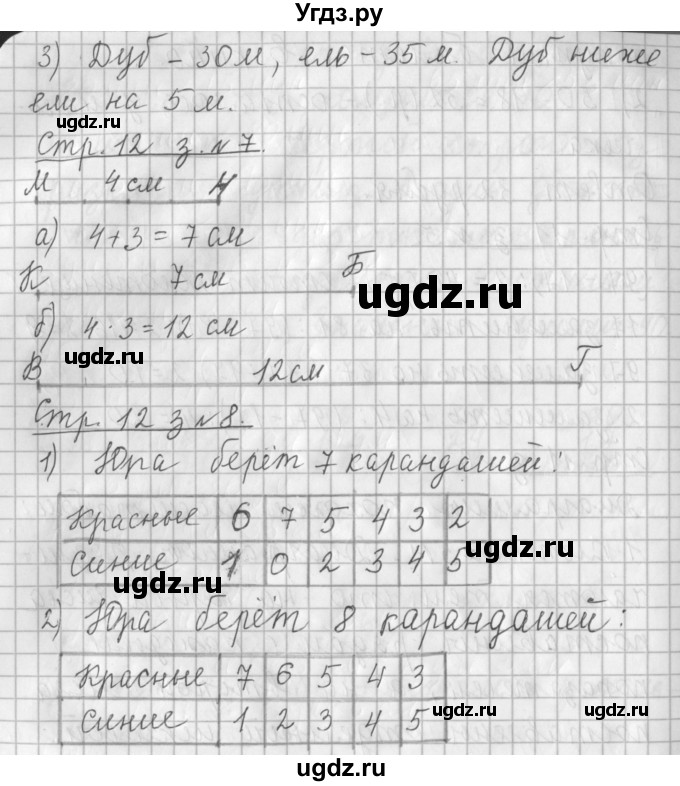 Угдз.ру
3) Дуб – 30 м, ель – 35 м. Дуб ниже
ели на 5 м.
ugdz.ru
Стр. 12 з. № 7.
М 4 см Н
а) 4 + 3 = 7 см
К 7 см Б
ugdz.ru
б) 4 · 3 = 12 см
ugdz.ru
В 12 см Г
Стр. 12 з № 8.
ugdz.ru
1) Юра берёт 7 карандашей:
Красные 6 7 5 4 3 2
ugdz.ru
Синие 1 0 2 3 4 5
ugdz.ru
2) Юра берёт 8 карандашей:
Красные 7 6 5 4 3
Синие 1 2 3 4 5
ugdz.ru ugdz.ru
ugdz.ru